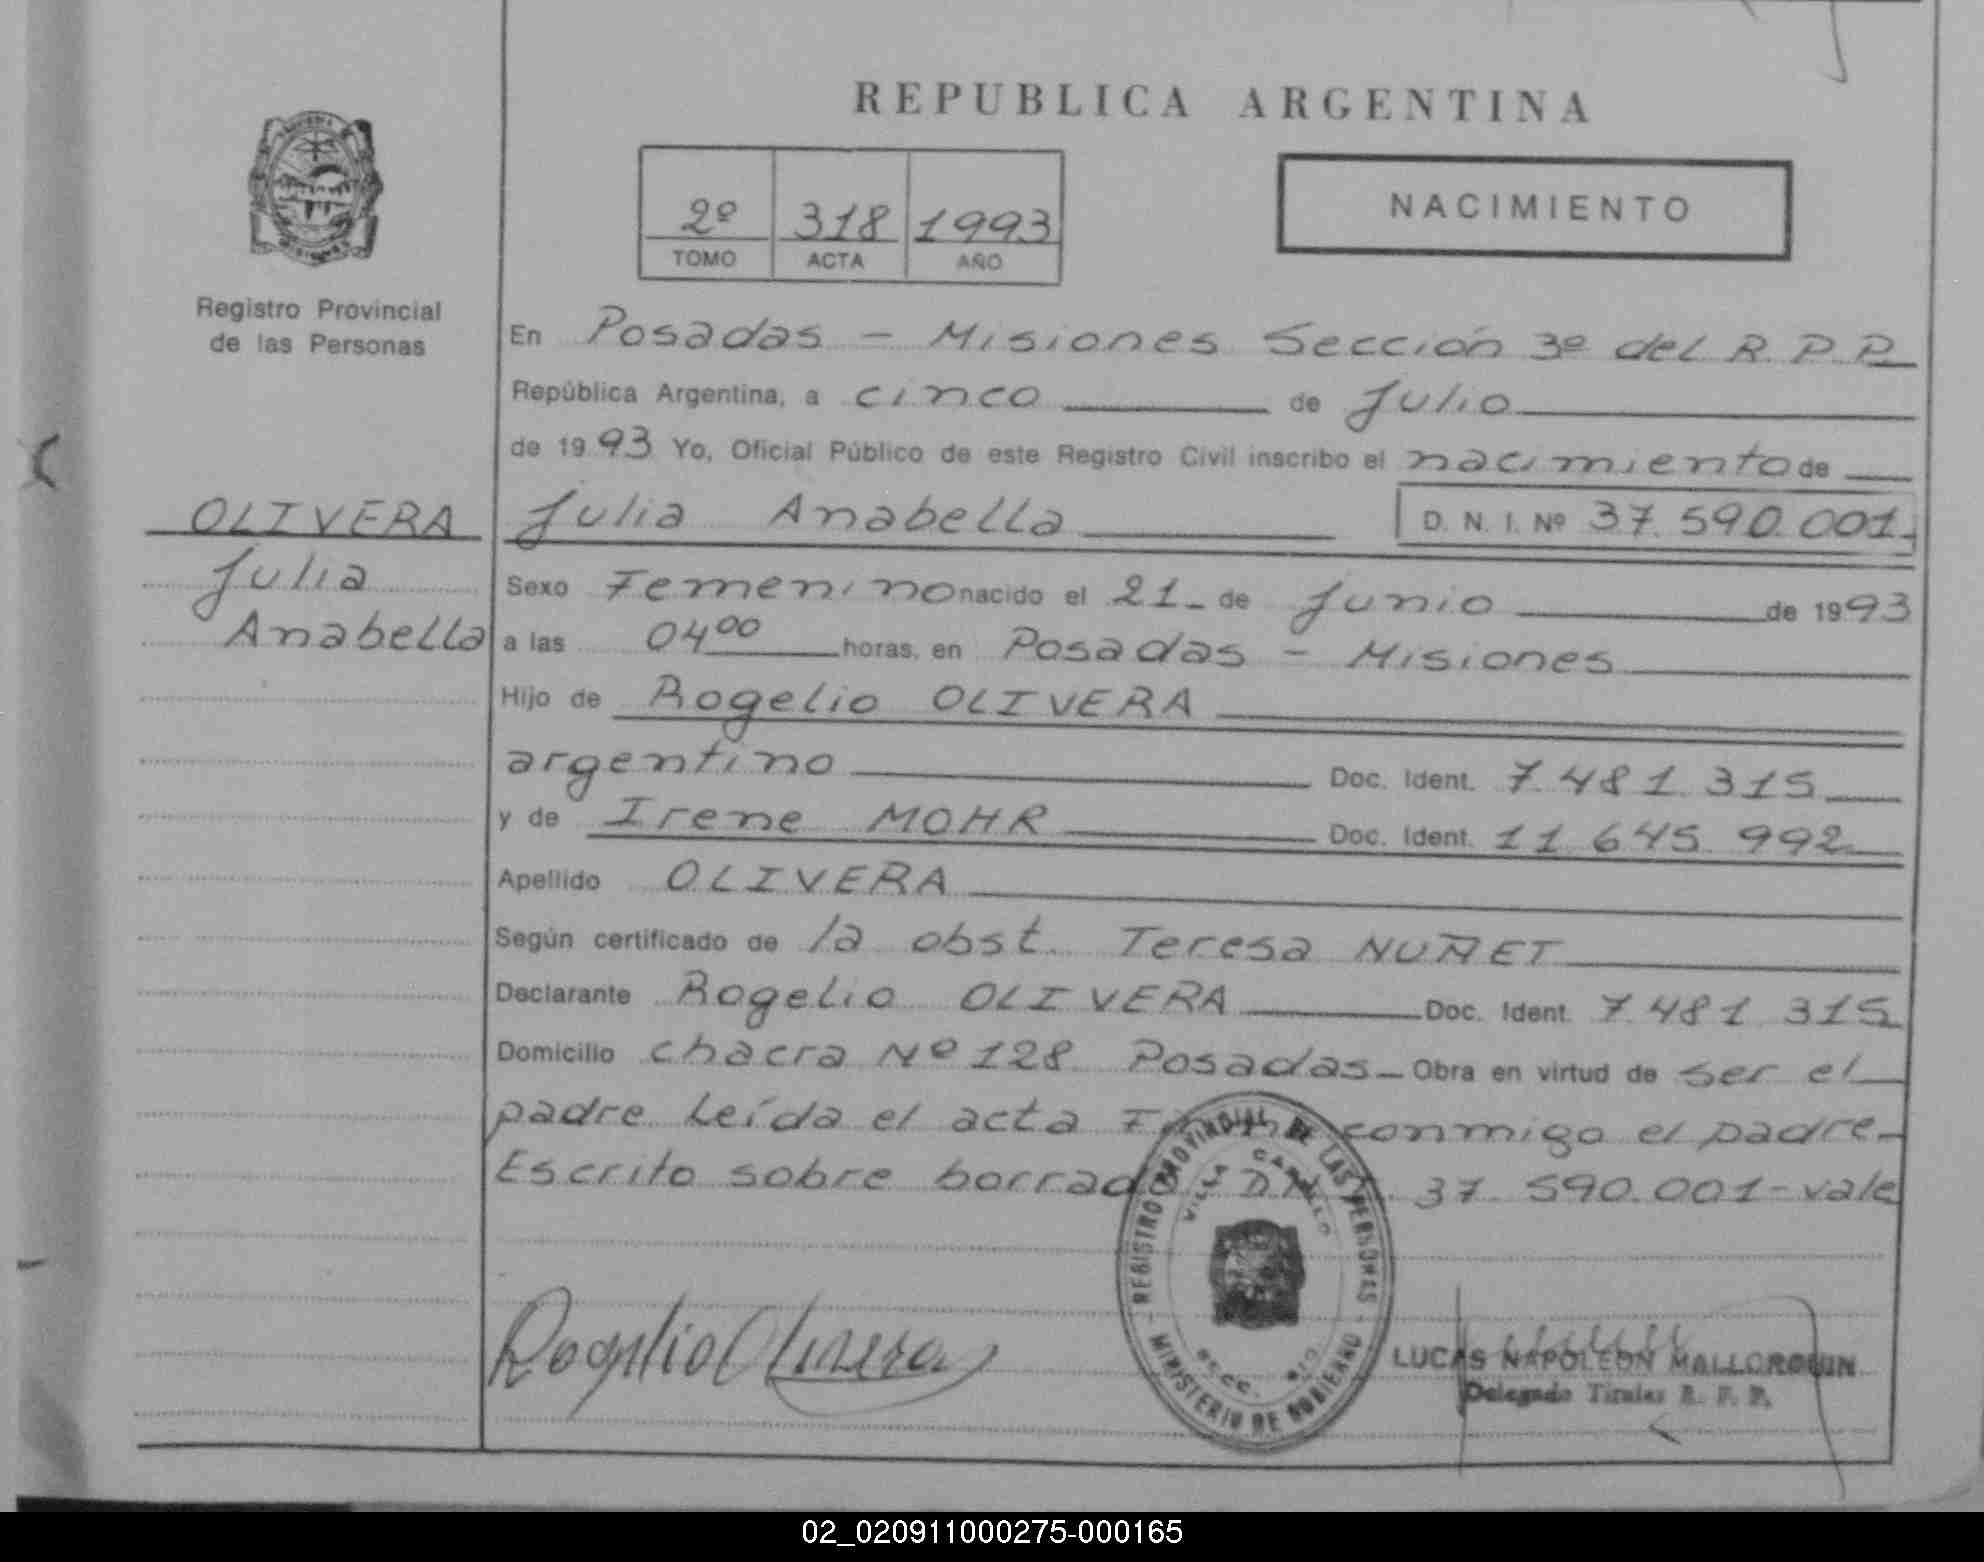 REPUBLICA ARGENTINA
2º 318 1993
TOMO ACTA AÑO
NACIMIENTO
Registro Provincial
de las Personas
OLIVERA
Julia
Anabella
En Posadas - Misiones Sección 3º del R. P. P.
República Argentina, a cinco de Julio
de 1993 Yo, Oficial Público de este Registro Civil inscribo el nacimiento de
Julia Anabella D. N. I. Nº 37.590.001
Sexo Femenino nacido el 21 de Junio de 1993
a las 04⁰⁰ horas, en Posadas - Misiones
Hijo de Rogelio OLIVERA
argentino Doc. Ident. 7.481.315
y de Irene MOHR Doc. Ident. 11.645.992
Apellido OLIVERA
Según certificado de la obst. Teresa NUÑET
Declarante Rogelio OLIVERA Doc. Ident. 7.481.315
Domicilio chacra Nº 128 Posadas Obra en virtud de ser el
padre Leída el acta conmigo el padre
Escrito sobre borrado D.N. 37.590.001 - vale
REGISTRO PROVINCIAL DE LAS PERSONAS
VILLA
MINISTERIO DE GOBIERNO
Rogelio Olivera
LUCAS NAPOLEON MALLORQUIN
Delegado Titular R. P. P.
02_020911000275-000165